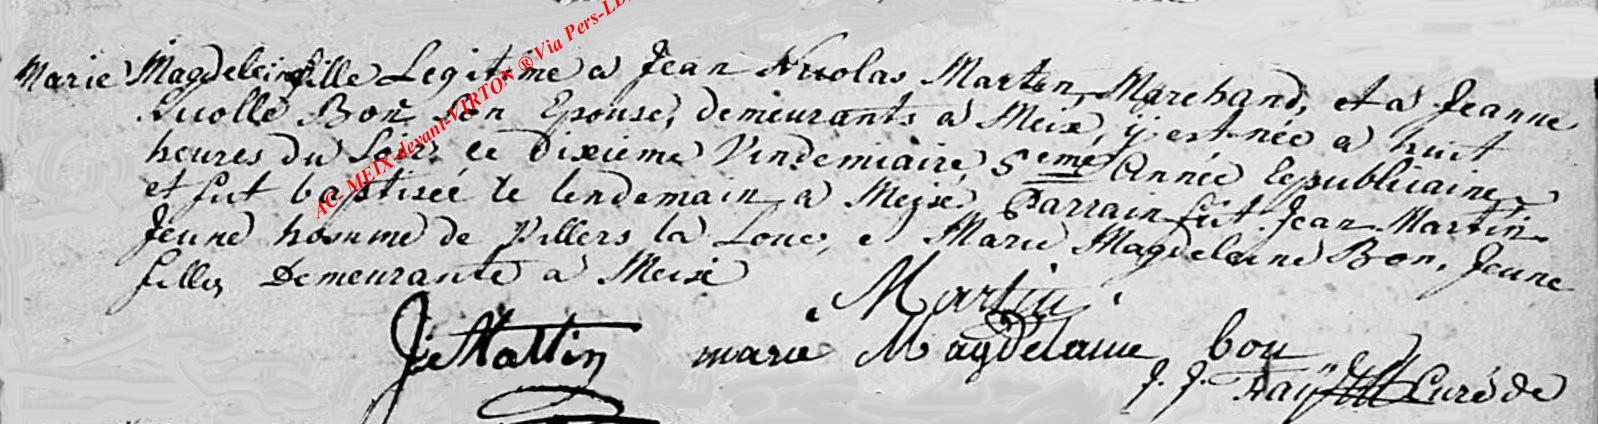 Marie Magdeleine fille Legitime a Jean Nicolas Martin, Marchand, et a Jeanne
Bon Son Epouse, demeurants a Meix, ÿ est née a huit
heures du Soir le dixieme Vindemiaire, 5eme Année Republicaine,
et fut baptisée le lendemain a Meix, Parrain fut Jean Martin
Jeune homme de Villers la Loue, et Marie Magdeleine Bon, Jeune
fille, Demeurante a Meix
Martin
J: Martin marie Magdelaine bon
J. J. Curé de
AC. MEIX-devant-VIRTON ® Via Pers-LD